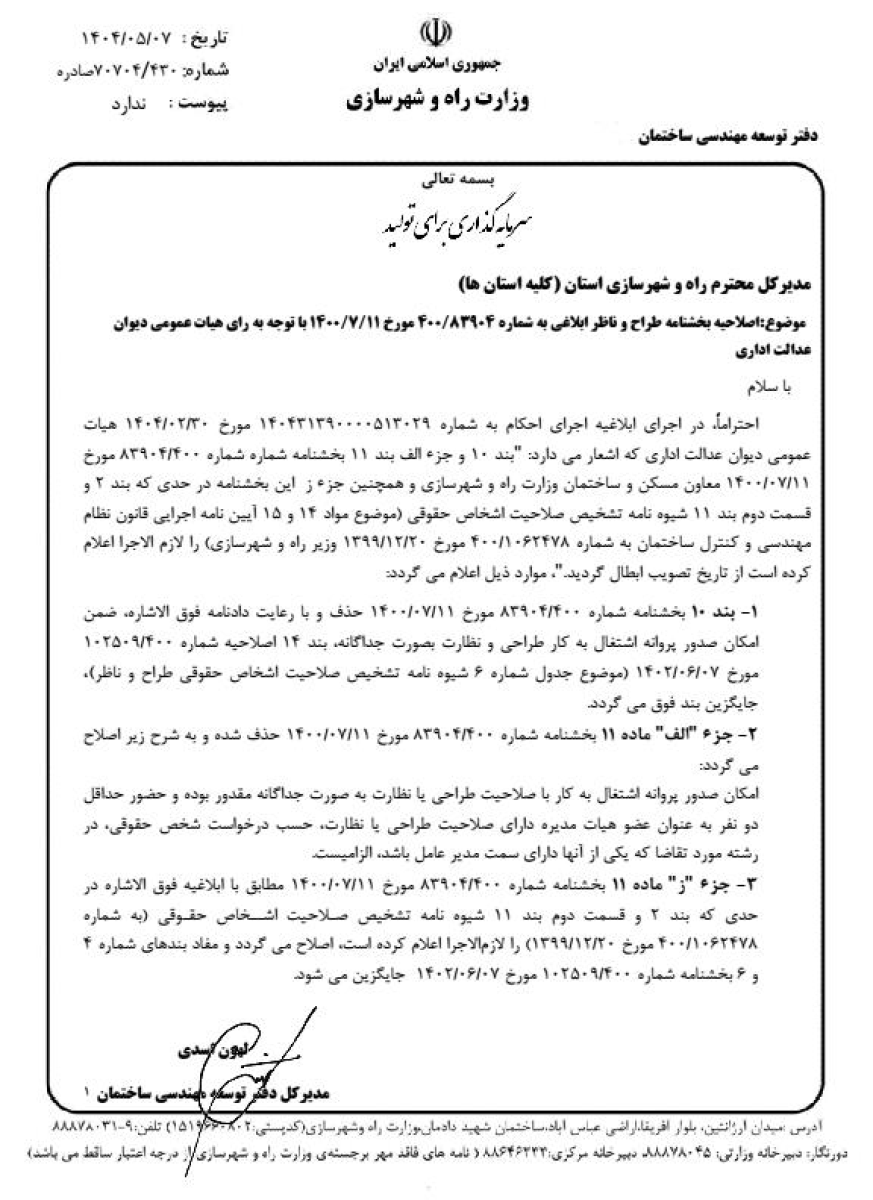 تاریخ : ۱۴۰۴/۰۵/۰۷
شماره: ۷۰۷۰۴/۴۳۰صادره
پیوست : ندارد
جمهوری اسلامی ایران
وزارت راه و شهرسازی
دفتر توسعه مهندسی ساختمان
بسمه تعالی
سرمایه گذاری برای تولید
مدیرکل محترم راه و شهرسازی استان (کلیه استان ها)
موضوع:اصلاحیه بخشنامه طراح و ناظر ابلاغی به شماره ۴۰۰/۸۳۹۰۴ مورخ ۱۴۰۰/۷/۱۱ با توجه به رای هیات عمومی دیوان
عدالت اداری
با سلام
احتراماً، در اجرای ابلاغیه اجرای احکام به شماره ۱۴۰۴۳۱۳۹۰۰۰۰۵۱۳۰۲۹ مورخ ۱۴۰۴/۰۲/۳۰ هیات
عمومی دیوان عدالت اداری که اشعار می دارد: "بند ۱۰ و جزء الف بند ۱۱ بخشنامه شماره شماره ۸۳۹۰۴/۴۰۰ مورخ
۱۴۰۰/۰۷/۱۱ معاون مسکن و ساختمان وزارت راه و شهرسازی و همچنین جزء ز این بخشنامه در حدی که بند ۲ و
قسمت دوم بند ۱۱ شیوه نامه تشخیص صلاحیت اشخاص حقوقی (موضوع مواد ۱۴ و ۱۵ آیین نامه اجرایی قانون نظام
مهندسی و کنترل ساختمان به شماره ۴۰۰/۱۰۶۲۴۷۸ مورخ ۱۳۹۹/۱۲/۲۰ وزیر راه و شهرسازی) را لازم الاجرا اعلام
کرده است از تاریخ تصویب ابطال گردید."، موارد ذیل اعلام می گردد:
۱- بند ۱۰ بخشنامه شماره ۸۳۹۰۴/۴۰۰ مورخ ۱۴۰۰/۰۷/۱۱ حذف و با رعایت دادنامه فوق الاشاره، ضمن
امکان صدور پروانه اشتغال به کار طراحی و نظارت بصورت جداگانه، بند ۱۴ اصلاحیه شماره ۱۰۲۵۰۹/۴۰۰
مورخ ۱۴۰۲/۰۶/۰۷ (موضوع جدول شماره ۶ شیوه نامه تشخیص صلاحیت اشخاص حقوقی طراح و ناظر)،
جایگزین بند فوق می گردد.
۲- جزء "الف" ماده ۱۱ بخشنامه شماره ۸۳۹۰۴/۴۰۰ مورخ ۱۴۰۰/۰۷/۱۱ حذف شده و به شرح زیر اصلاح
می گردد:
امکان صدور پروانه اشتغال به کار با صلاحیت طراحی یا نظارت به صورت جداگانه مقدور بوده و حضور حداقل
دو نفر به عنوان عضو هیات مدیره دارای صلاحیت طراحی یا نظارت، حسب درخواست شخص حقوقی، در
رشته مورد تقاضا که یکی از آنها دارای سمت مدیر عامل باشد، الزامیست.
۳- جزء "ز" ماده ۱۱ بخشنامه شماره ۸۳۹۰۴/۴۰۰ مورخ ۱۴۰۰/۰۷/۱۱ مطابق با ابلاغیه فوق الاشاره در
حدی که بند ۲ و قسمت دوم بند ۱۱ شیوه نامه تشخیص صلاحیت اشخاص حقوقی (به شماره
۴۰۰/۱۰۶۲۴۷۸ مورخ ۱۳۹۹/۱۲/۲۰) را لازم‌الاجرا اعلام کرده است، اصلاح می گردد و مفاد بندهای شماره ۴
و ۶ بخشنامه شماره ۱۰۲۵۰۹/۴۰۰ مورخ ۱۴۰۲/۰۶/۰۷ جایگزین می شود.
اسدی
مدیرکل دفتر توسعه مهندسی ساختمان ۱
آدرس :میدان آرژانتین، بلوار آفریقا،اراضی عباس آباد،ساختمان شهید دادمان،وزارت راه وشهرسازی(کدپستی: تلفن:۹-۸۸۸۷۸۰۳۱
دورنگار: دبیرخانه وزارتی: ۸۸۸۷۸۰۴۵، دبیرخانه مرکزی:۸۸۶۴۶۲۳۳ ( نامه های فاقد مهر برجسته‌ی وزارت راه و شهرسازی از درجه اعتبار ساقط می باشد)